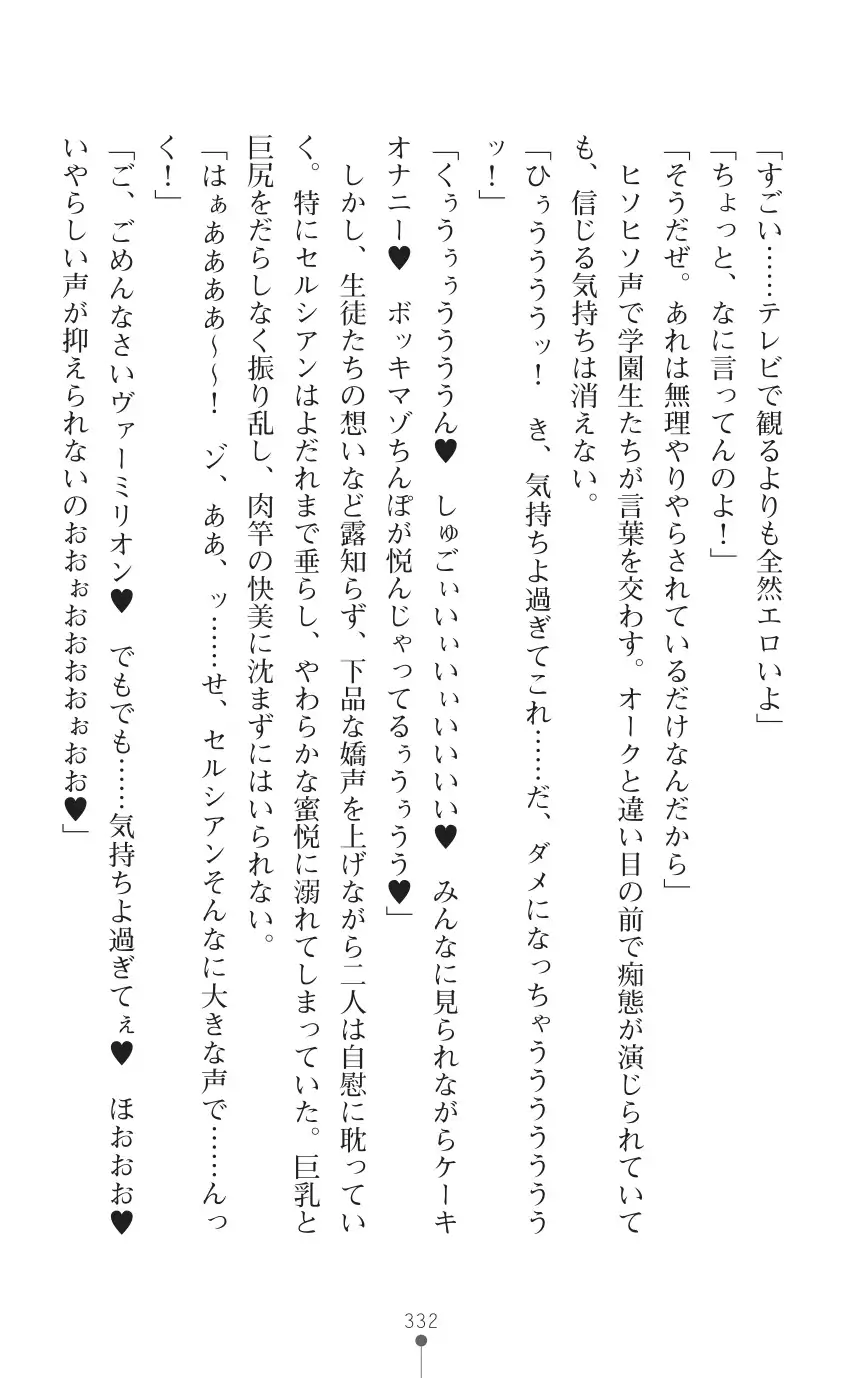 「すごい……テレビで観るよりも全然エロいよ」
「ちょっと、なに言ってんのよ！」
「そうだぜ。あれは無理やりやらされているだけなんだから」
　ヒソヒソ声で学園生たちが言葉を交わす。オークと違い目の前で痴態が演じられていて
も、信じる気持ちは消えない。
「ひぅうううッ！　き、気持ちよ過ぎてこれ……だ、ダメになっちゃうううううううう
ッ！」
「くぅうぅぅうううん♥　しゅごぃいぃいぃいいいい♥　みんなに見られながらケーキ
オナニー♥　ボッキマゾちんぽが悦んじゃってるぅうぅうう♥」
　しかし、生徒たちの想いなど露知らず、下品な嬌声を上げながら二人は自慰に耽ってい
く。特にセルシアンはよだれまで垂らし、やわらかな蜜悦に溺れてしまっていた。巨乳と
巨尻をだらしなく振り乱し、肉竿の快美に沈まずにはいられない。
「はぁああああ～～！　ゾ、ああ、ッ……せ、セルシアンそんなに大きな声で……んっ
く！」
「ご、ごめんなさいヴァーミリオン♥　でもでも……気持ちよ過ぎてぇ♥　ほおおお♥
いやらしい声が抑えられないのおおぉおおおおぉおお♥」
332